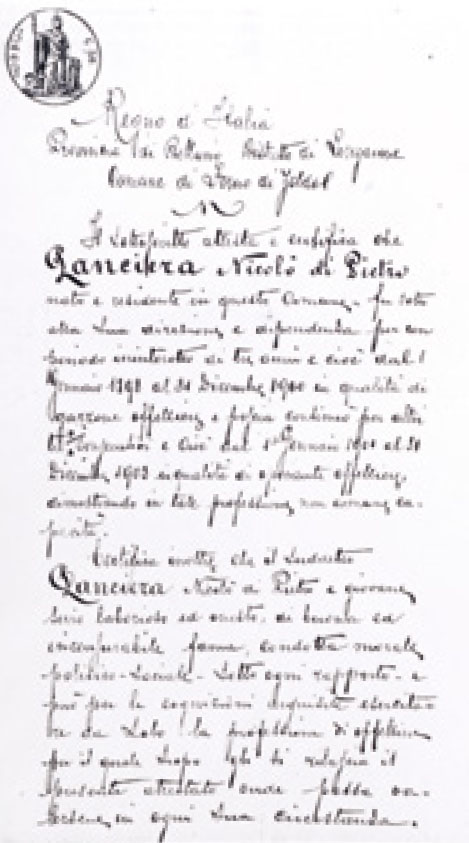 Regno d'Italia
Provincia di Belluno Distretto di Longarone
Comune di Forno di Zoldo
Il sottoscritto attesta e certifica che
Lanciera Nicolò di Pietro
nato e residente in questo Comune, fu sotto
alla sua direzione e dipendenza per un
periodo ininterrotto di tre anni e cioè dal 1
Gennaio 1898 al 31 Dicembre 1900 in qualità di
garzone offelliere e continuò per altri
e cioè dal 1° Gennaio 1901 al 31
Dicembre 1903 in qualità di offelliere,
dimostrando in tale professione non comune ca-
pacità.
Certifica inoltre che il suddetto
Lanciera Nicolò di Pietro è giovane
serio laborioso ed onesto, di buona ed
incensurabile fama, condotta morale
politico-sociale sotto ogni rapporto e
può per le cognizioni acquisite esercita-
re da solo la professione di offelliere
per il quale scopo gli si rilascia il
presente attestato onde possa va-
lersene in ogni sua circostanza.